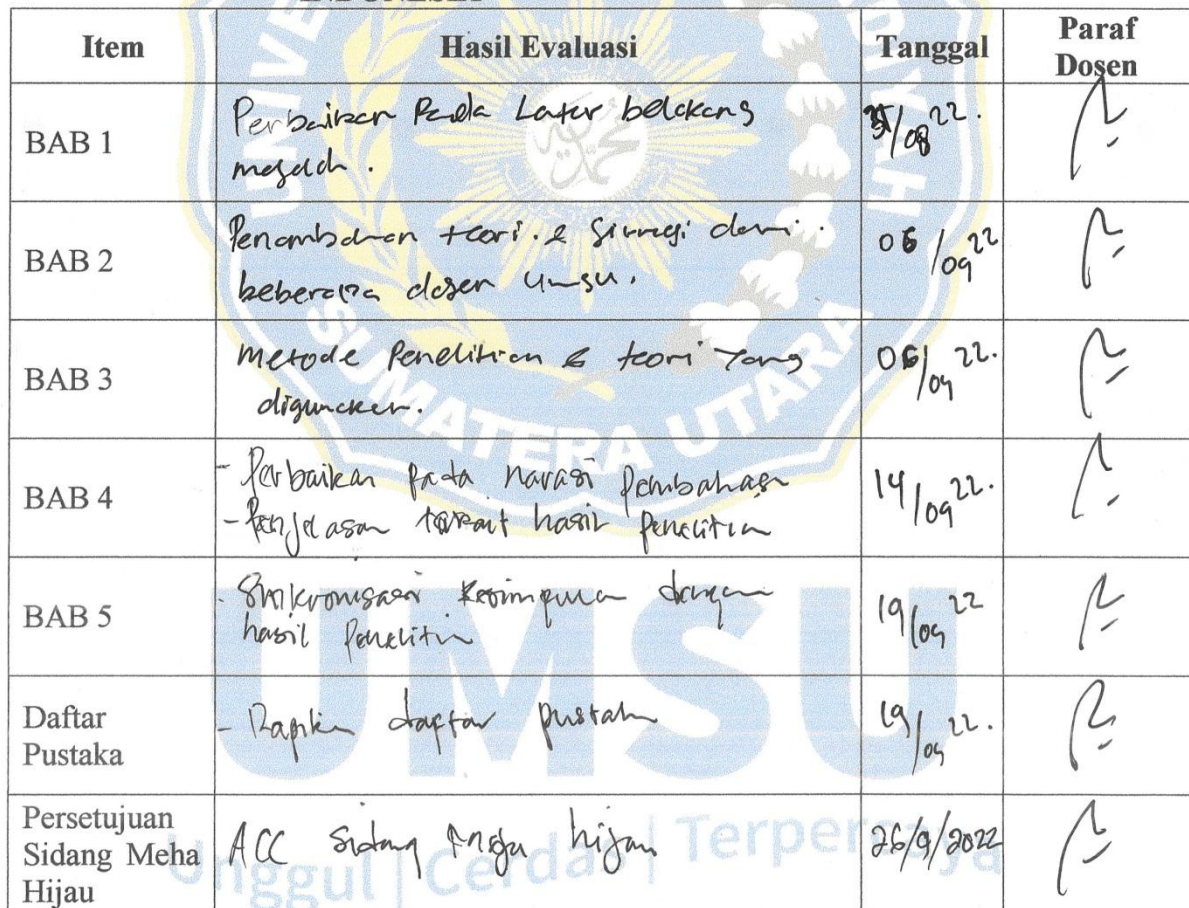 Item Hasil Evaluasi Tanggal Paraf
Dosen
BAB 1
Perbaikan Pada Latar belakang
masalah.
31/08 22.
BAB 2
Penambahan teori. & dari.
beberapa dosen Umsu.
06/09 22
BAB 3
Metode Penelitian & teori Yang
digunakan.
06/09 22.
BAB 4
- Perbaikan pada narasi pembahasan
- Penjelasan terkait hasil penelitian
14/09 22.
BAB 5
- Sinkronisasi Kesimpulan dengan
hasil Penelitin
19/09 22
Daftar
Pustaka
- Rapikn daftar pustaka
19/09 22.
Persetujuan
Sidang Meha
Hijau
ACC sidang meja hijau
26/9/2022
SUMATERA UTARA
UMSU
Unggul | Cerdas | Terpercaya